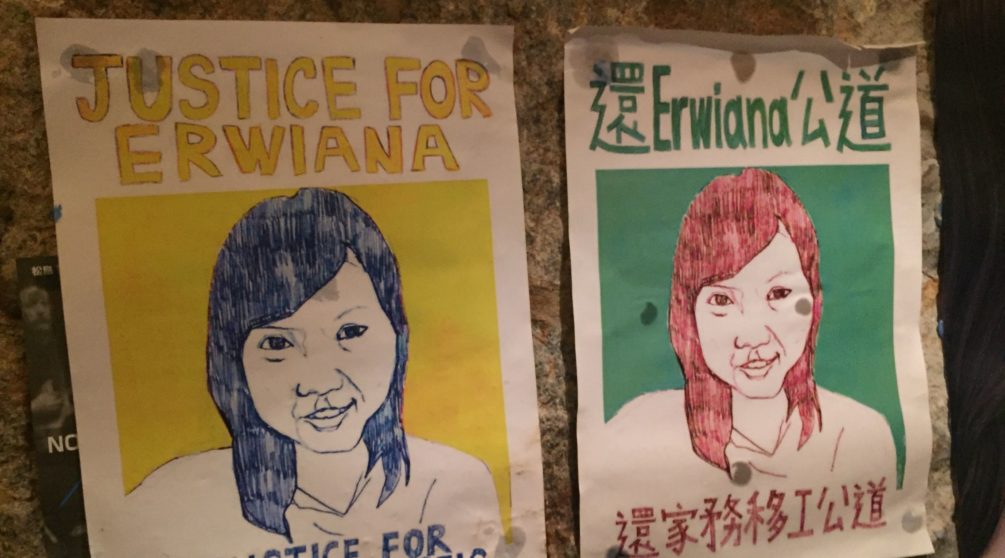 JUSTICE FOR
ERWIANA
JUSTICE FOR
還Erwiana公道
還家務移工公道
松島
NC